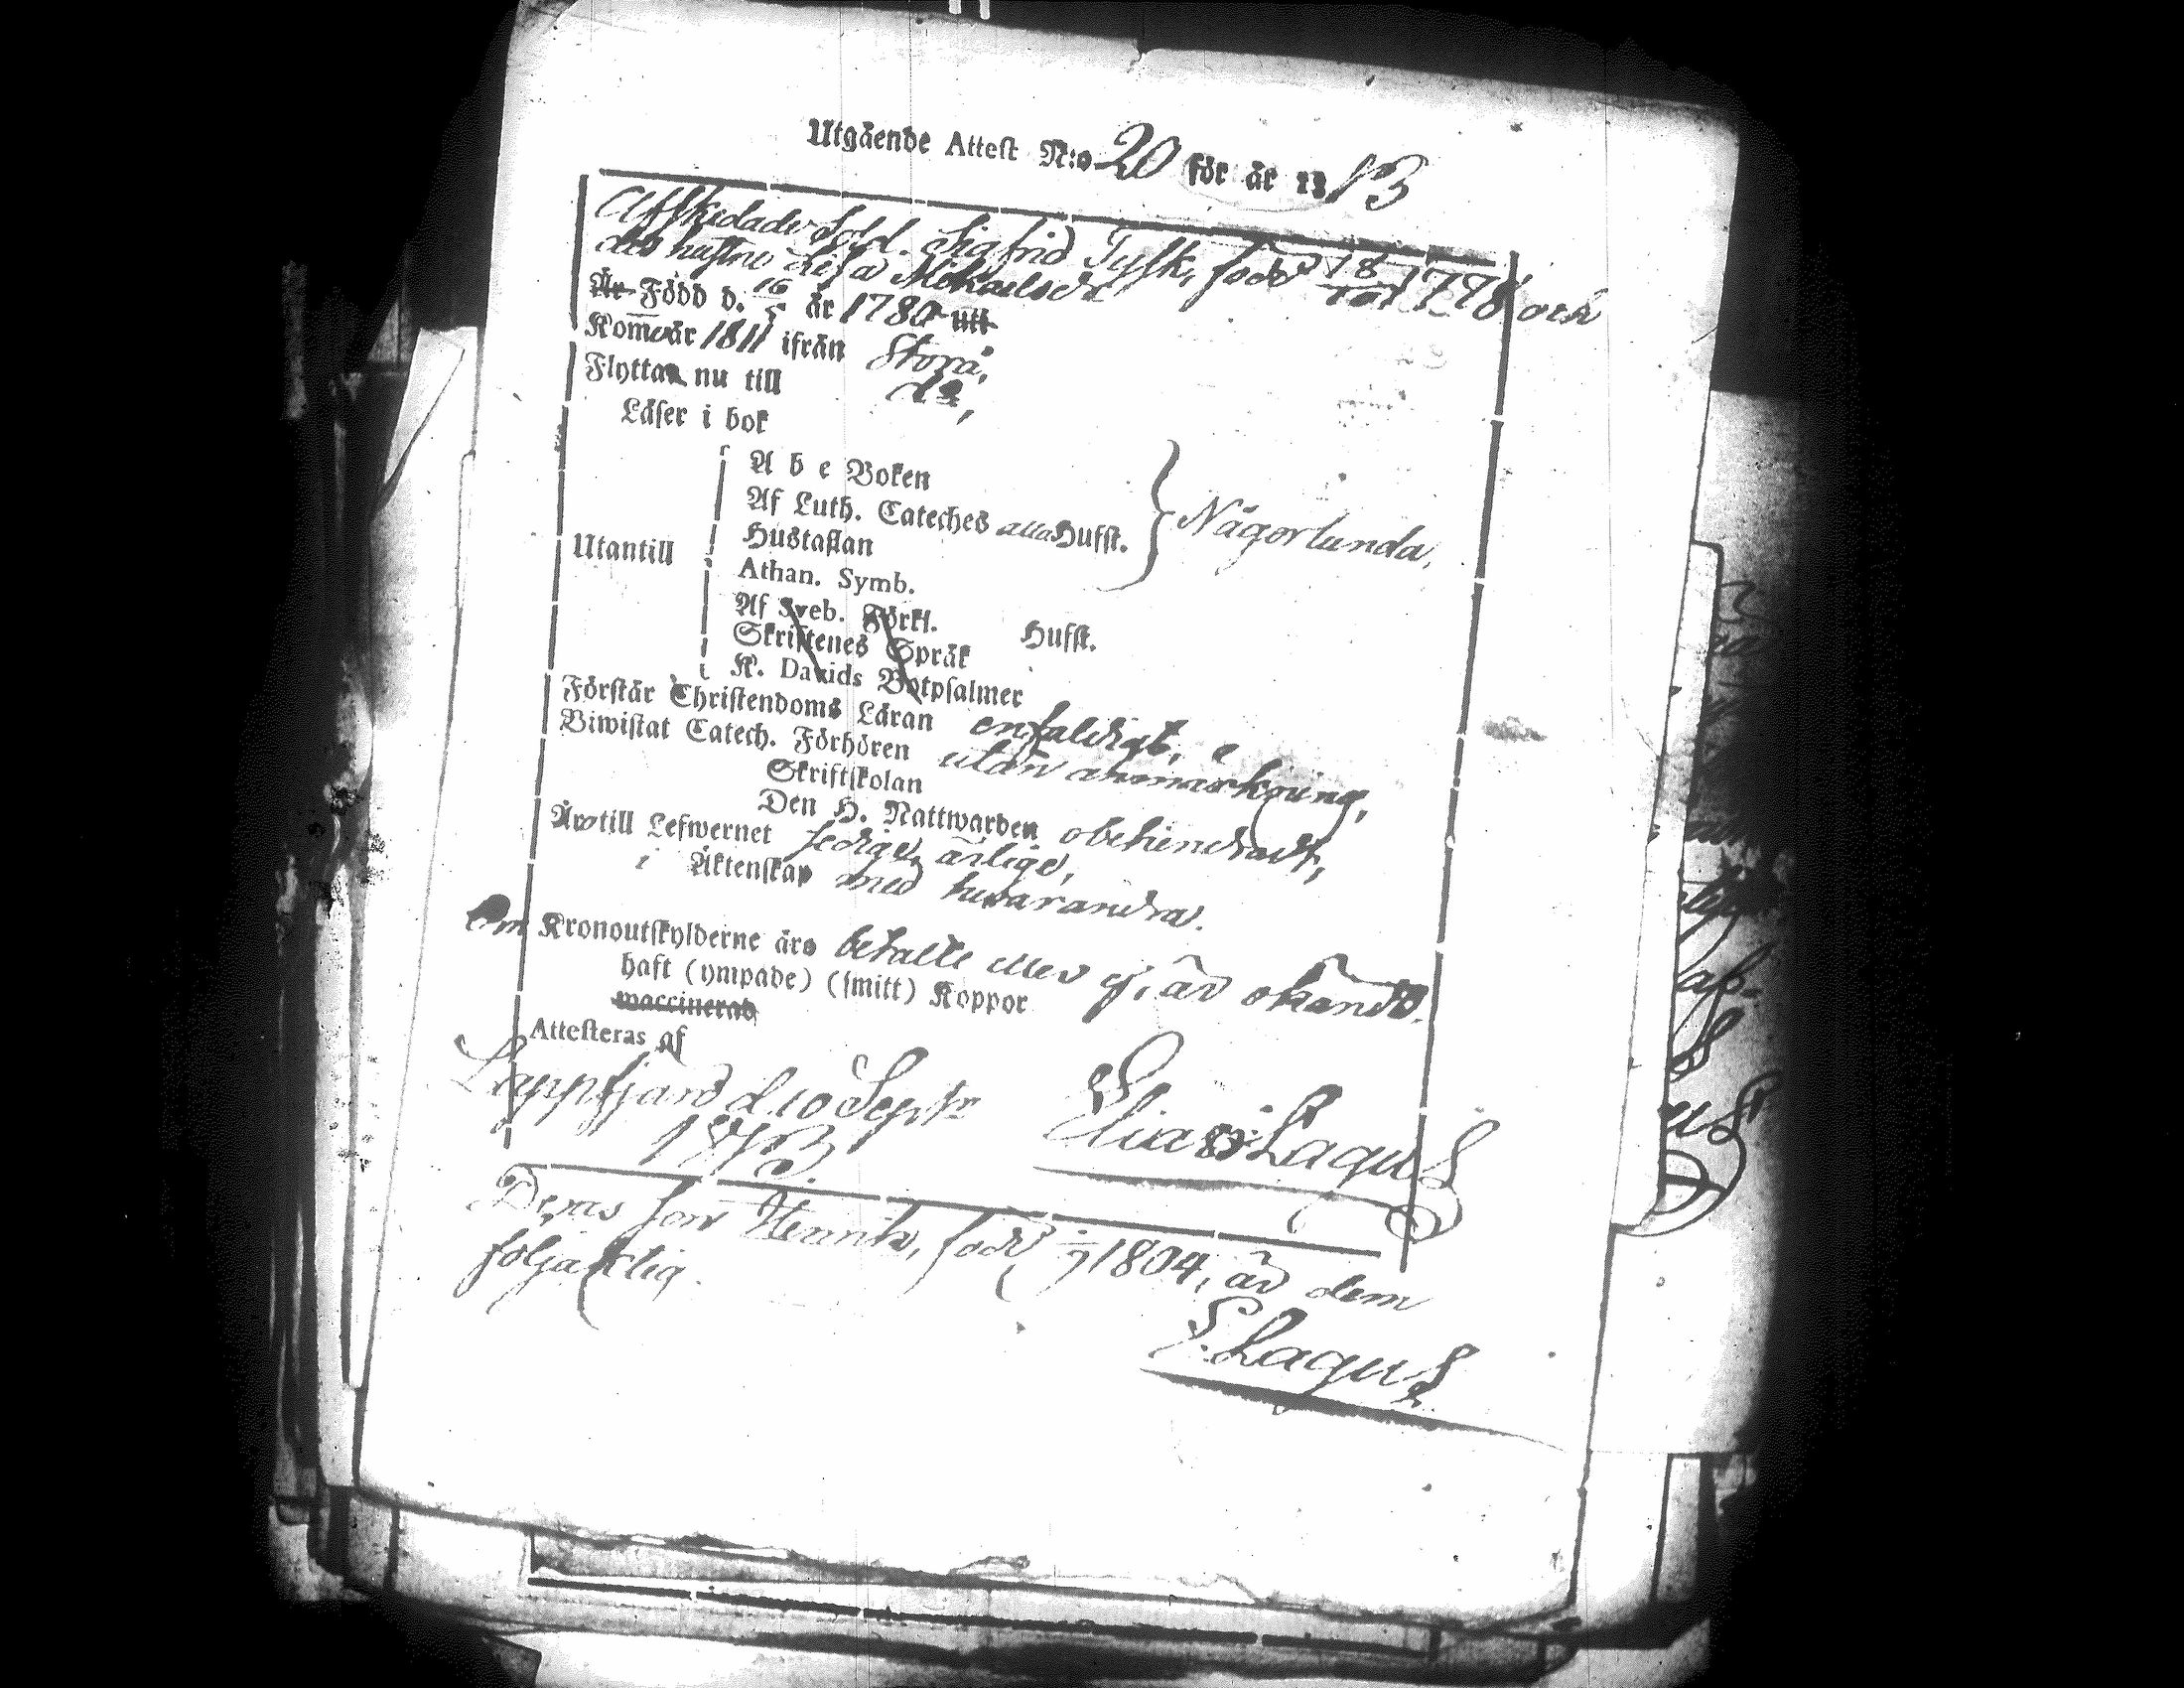 Utgående Attest N:o 20 för år 1813
Afskedade Sold. Sigfrid Tysk, född 18/10 1778 och
des hustru Lisa Mikaelsdr
Är Född d. 16/5 år 1780 utt
Komo år 1811 ifrån Storå,
Flytta nu till do,
Läser i bok
A b c Boken
Af Luth. Cateches alla Hufst. Någorlunda,
Hustaflan
Utantill
Athan. Symb.
Af Sveb. Förkl. Hufst.
Skriftenes Språk
K. Davids Botpsalmer
Förstår Christendoms Läran enfaldigt,
Biwistat Catech. Förhören utan anmärkning,
Skriftskolan
Den H. Nattwarden obehindradt,
Äro till Lefwernet sedige, ärlige,
i Äktenskap med hvarandra.
Om Kronoutskylderne äro betalte eller ej, är okändt.
haft (ympade) (smitt) Koppor
waccinerad
Attesteras af
Lappfjärd d. 10 Septr Elias Lagus
1813.
Deras son Henrik, född 1804, är dem
följaktlig.
E. Lagus